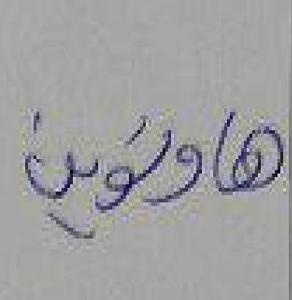 هاوشوين